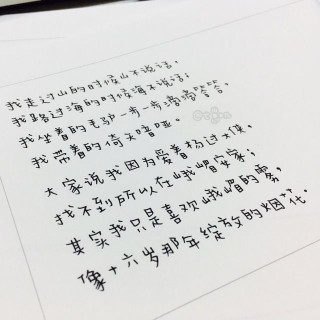 我走过山的时候山不说话，
我路过海的时候海不说话；
我坐着的毛驴一步一步滴滴答答，
我带着的倚天喑哑。
大家说我因为爱着杨过大侠，
找不到所以在峨嵋安家；
其实我只是喜欢峨嵋的雾，
像十六岁那年绽放的烟花。